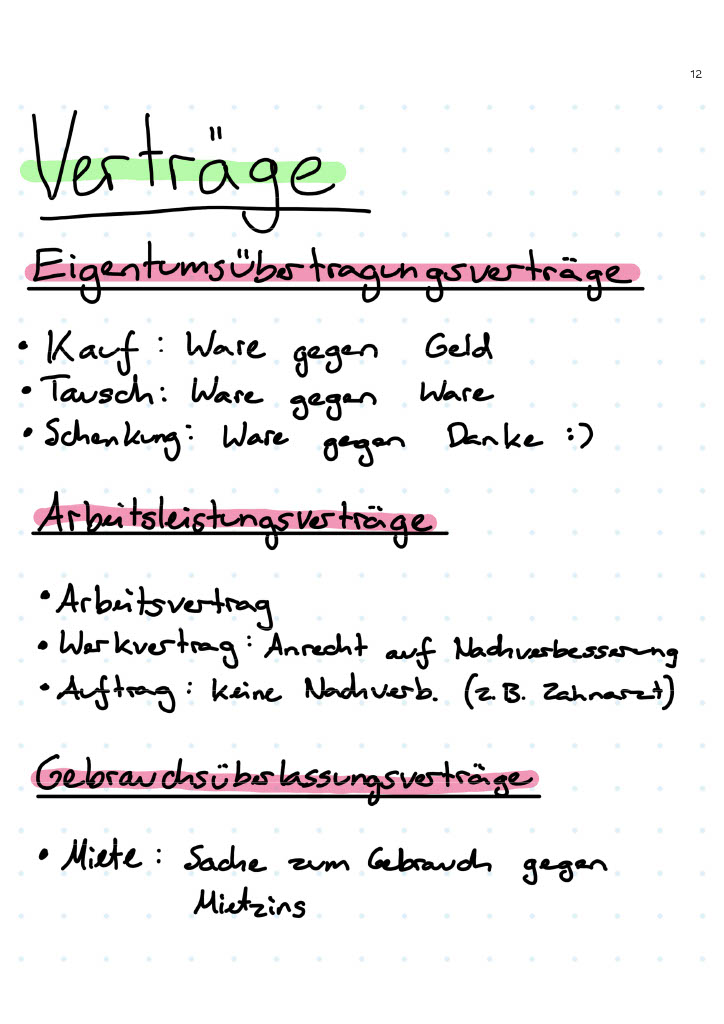 12
Verträge
Eigentumsübertragungsverträge
• Kauf: Ware gegen Geld
• Tausch: Ware gegen Ware
• Schenkung: Ware gegen Danke :)
Arbeitsleistungsverträge
• Arbeitsvertrag
• Werkvertrag: Anrecht auf Nachverbesserung
• Auftrag: Keine Nachverb. (z.B. Zahnarzt)
Gebrauchsüberlassungsverträge
• Miete: Sache zum Gebrauch gegen
Mietzins